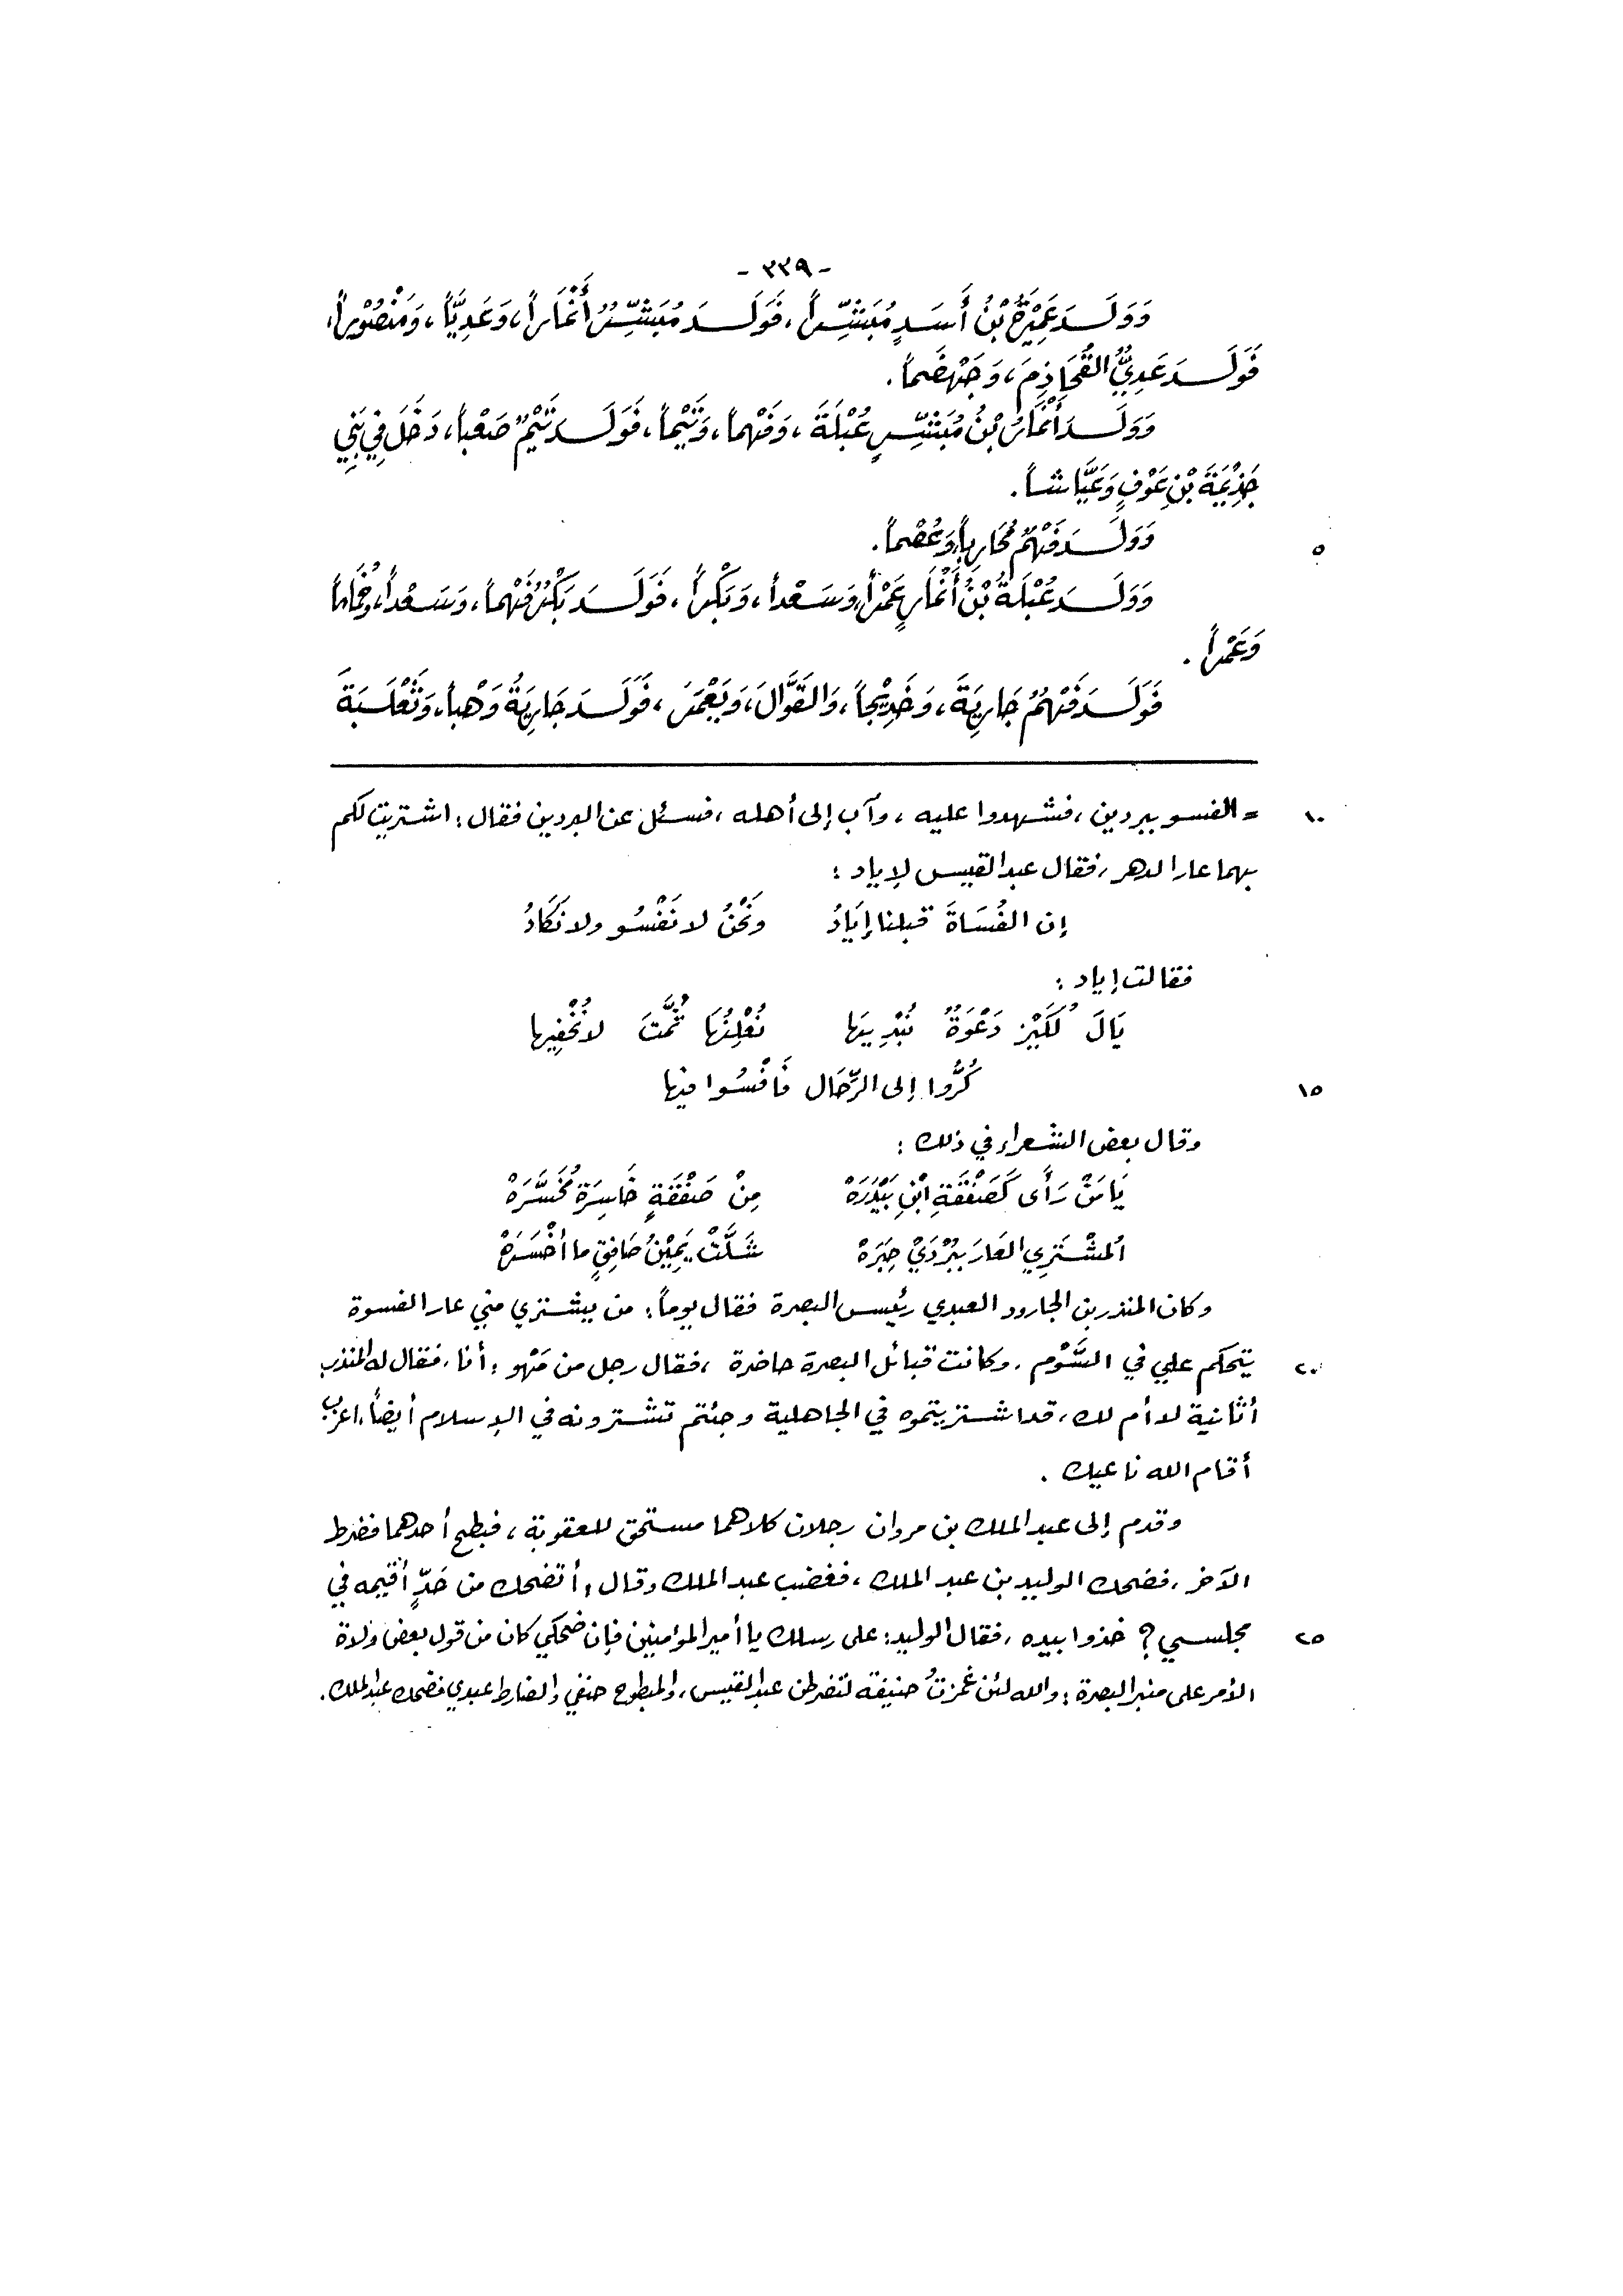 - ٣٣٩ -
وَوَلَدَ عَمِيْرَةُ بْنُ أَسَدٍ مُبَشِّراً، فَوَلَدَ مُبَشِّرُ أَنْمَاراً، وَعَدِيَّاً، وَمَنْصُوْراً،
فَوَلَدَ عَدِيُّ القُحَاذِمَ، وَجَهْضَماً.
وَوَلَدَ أَنْمَارُ بْنُ مُبَشِّرٍ عُبْلَةَ، وَفَهْماً، وَتَيْماً، فَوَلَدَ تَيْمُ صَعْباً، دَخَلَ فِي بَنِي
جَذِيْمَةَ بْنِ عَوْفٍ وَعَيَّاشاً.
وَوَلَدَ فَهْمُ مُحَارِباً، وَعُصْماً.
٥
وَوَلَدَ عُبْلَةُ بْنُ أَنْمَارٍ عَمْراً، وَسَعْداً، وَبَكْراً، فَوَلَدَ بَكْرُ فَهْماً، وَسَعْداً، وَخُمَاماً
وَعَمْراً.
فَوَلَدَ فَهْمُ جَارِيَةَ، وَخَدِيْجاً، وَالقَوَّالَ، وَيَعْمَرَ، فَوَلَدَ جَارِيَةُ وَهْباً، وَثَعْلَبَةَ
١٠
= الفسو ببردين، فشهدوا عليه، وآب إلى أهله، فسئل عن البردين فقال: اشتريت لكم
بهما عار الدهر، فقال عبد القيس لإياد:
إن الفُسَاةَ قبلنا إيَادُ ونَحْنُ لا نَفْسُو ولا نَكَادُ
فقالت إياد:
يَالَ لُكَيْزٍ دَعْوَةً نُبْدِيَها نُعْلِنُهَا ثُمَّتَ لا نُخْفِيها
كُرُّوا إلى الرِّحَال فَافْسُوا فيها
١٥
وقال بعض الشعراء في ذلك:
يَا مَنْ رَأَى كَصَفْقَةِ ابْنِ بَيْدَرَهْ مِنْ صَفْقَةٍ خَاسِرَةٍ مُخَسَّرَهْ
المُشْتَرِي العَارَ بِبُرْدَيْ حِبَرَهْ شَلَّتْ يَمِيْنُ صَافِقٍ ما أخْسَرَهْ
وكان المنذر بن الجارود العبدي رئيس البصرة فقال يوماً: من يشتري مني عار الفسوة
يتحكم علي في السَّوْم، وكانت قبائل البصرة حاضرة، فقال رجل من مَهْو: أنا، فقال له المنذر:
٢٠
أثانية لا أم لك، قد اشتريتموه في الجاهلية وجئتم تشترونه في الإسلام أيضاً، اعزب
أقام الله ناعيك.
وقدم إلى عبد الملك بن مروان رجلان كلاهما مستحق للعقوبة، فبطح أحدهما فضرط
الآخر، فضحك الوليد بن عبد الملك، فغضب عبد الملك وقال: أتضحك من حَدٍّ أقيمه في
مجلسي؟ خذوا بيده، فقال الوليد: على رسلك يا أمير المؤمنين فإن ضحكي كان من قول بعض ولاة
٢٥
الأمر على منبر البصرة: والله لئن غمزتُ حنيفة لتضرطن عبد القيس، والمبطوح حنفي والضارط عبدي فضحك عبد الملك.